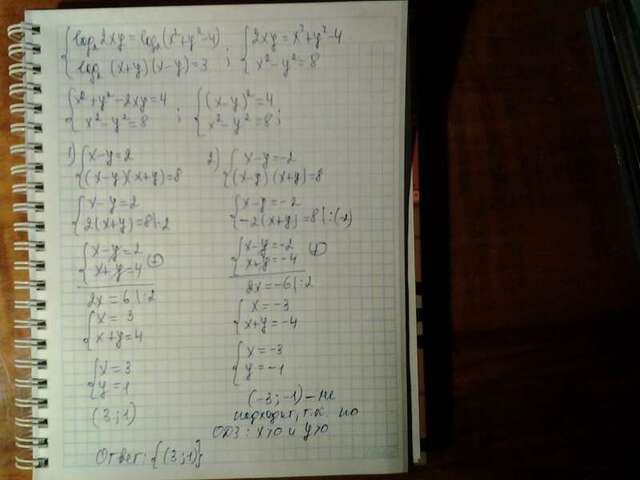 {log₂2xy=log₂(x²+y²-4) ; {2xy=x²+y²-4
{log₂(x+y)(x-y)=3 {x²-y²=8
{x²+y²-2xy=4 ; {(x-y)²=4
{x²-y²=8 {x²-y²=8;
1) {x-y=2
{(x-y)(x+y)=8
{x-y=2
{2(x+y)=8|:2
{x-y=2
{x+y=4 (+)
2x=6|:2
{x=3
{x+y=4
{x=3
{y=1
(3;1)
2) {x-y=-2
{(x-y)(x+y)=8
{x-y=-2
{-2(x+y)=8|:(-2)
{x-y=-2
{x+y=-4 (+)
2x=-6|:2
{x=-3
{x+y=-4
{x=-3
{y=-1
(-3;-1) - не
подходит, т.к. по
ОДЗ: x>0 и y>0
Ответ: {(3;1)}